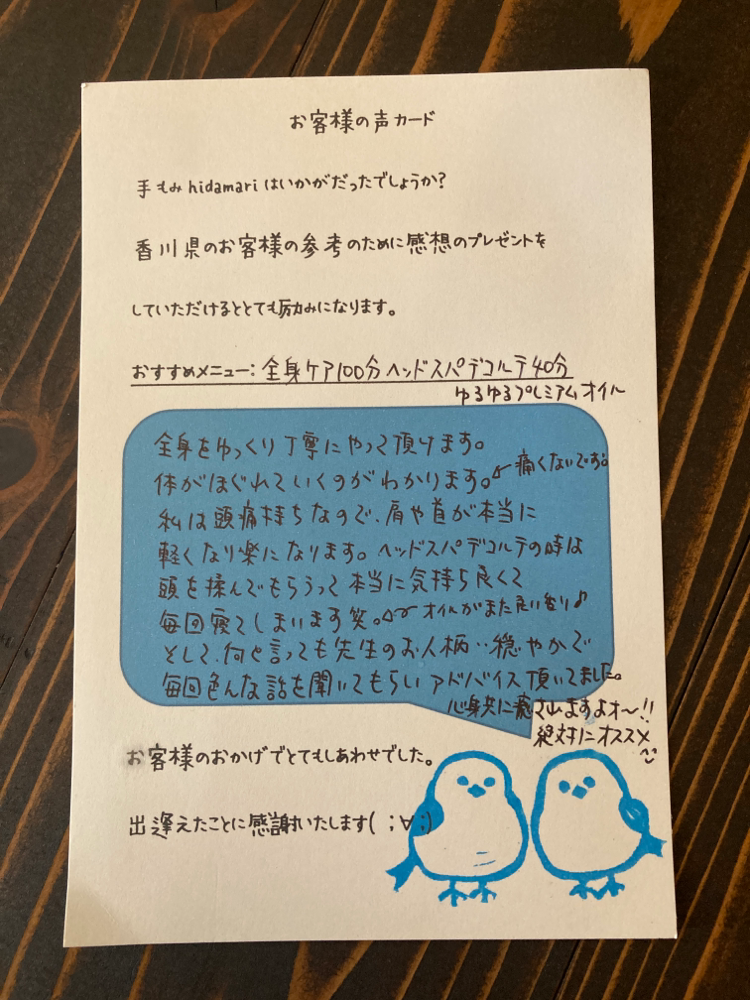 お客様の声カード
手もみhidamariはいかがだったでしょうか?
香川県のお客様の参考のために感想のプレゼントを
していただけるととても励みになります。
おすすめメニュー: 全身ケア100分 ヘッドスパデコルテ40分
ゆるゆるプレミアムオイル
全身をゆっくり丁寧にやって頂けます。
体がほぐれていくのがわかります。←痛くないです。
私は頭痛持ちなので、肩や首が本当に
軽くなり楽になります。ヘッドスパデコルテの時は
頭を揉んでもらうって本当に気持ち良くて
毎回寝てしまいます笑。←オイルがまた良い香り♪
そして、何と言っても先生のお人柄‥穏やかで
毎回色んな話を聞いてもらいアドバイス頂いてました。
心身共に癒されますよォ〜!!
絶対にオススメ
お客様のおかげでとてもしあわせでした。
出逢えたことに感謝いたします( ;∀;)